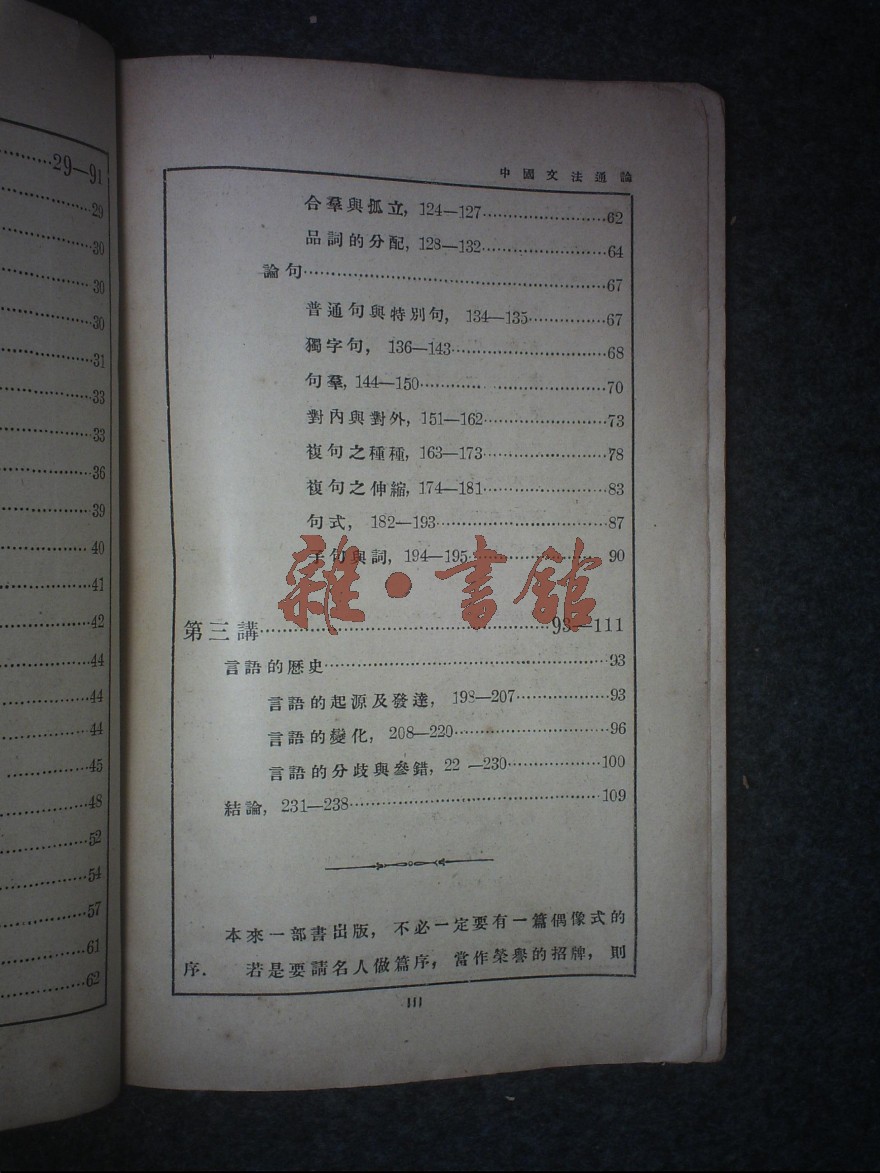 29—91
29
30
30
30
31
33
33
36
39
40
41
42
44
44
44
45
48
52
54
57
61
62
中國文法通論
合羣與孤立, 124—127……62
品詞的分配, 128—132……64
論句……67
普通句與特別句, 134—135……67
獨字句, 136—143……68
句羣, 144—150……70
對內與對外, 151—162……73
複句之種種, 163—173……78
複句之伸縮, 174—181……83
句式, 182—193……87
子句與詞, 194—195……90
雜·書館
第三講……93—111
言語的歷史……93
言語的起源及發達, 198—207……93
言語的變化, 208—220……96
言語的分歧與參錯, 22 —230……100
結論, 231—238……109
本來一部書出版, 不必一定要有一篇偶像式的
序. 若是要請名人做篇序, 當作榮譽的招牌, 則
III